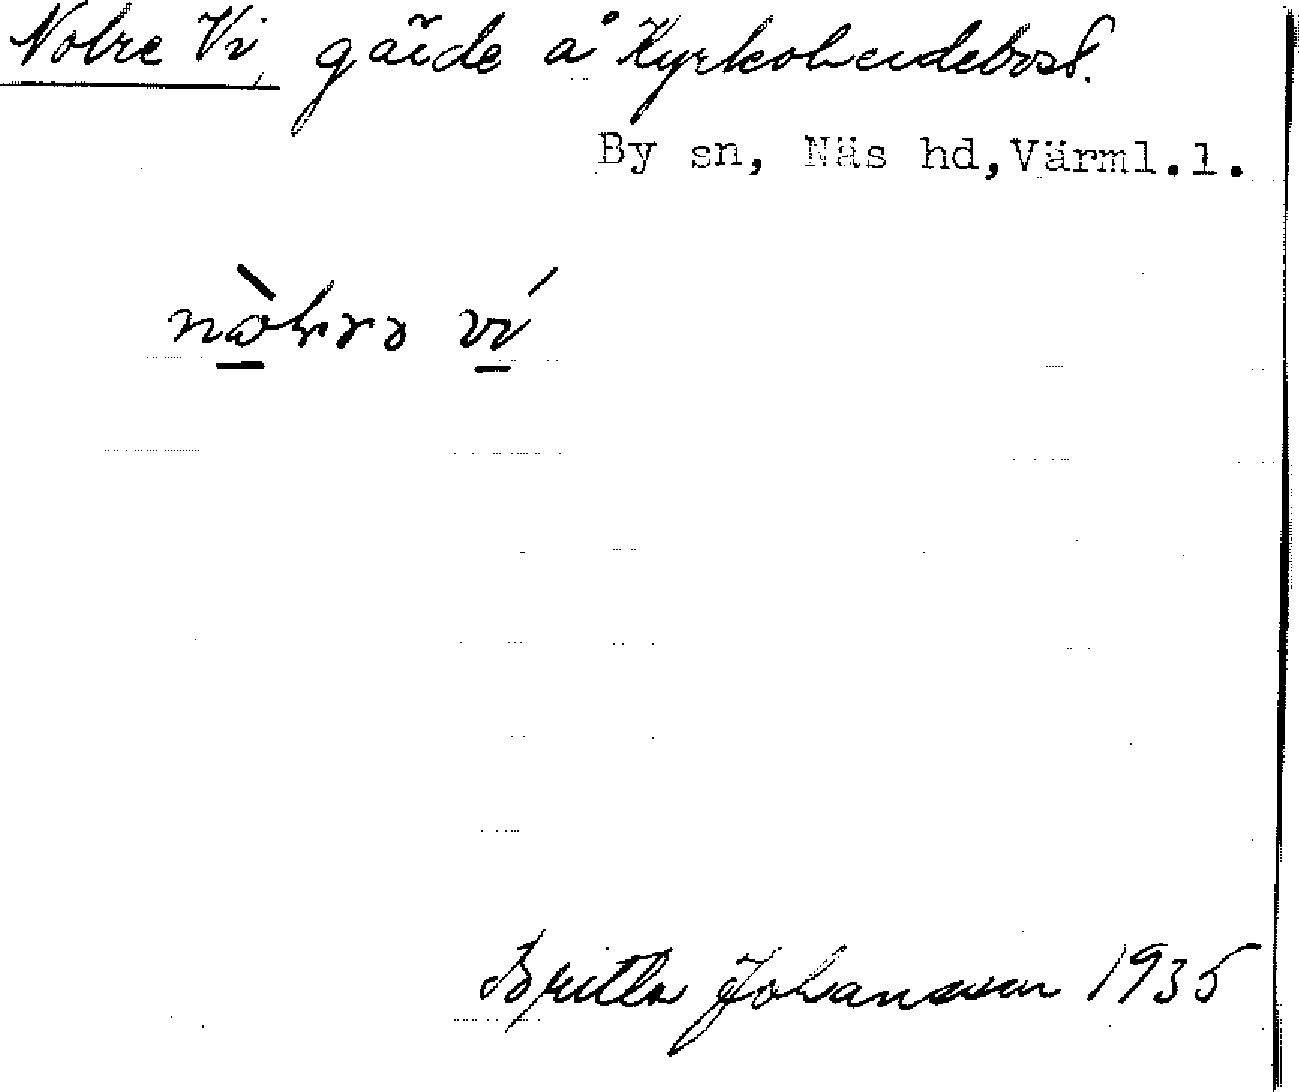 Nobre Vi, gärde å Kyrkoherdebost.
By sn, Näs hd, Värml.l.
ví
Britta Johansson 1935